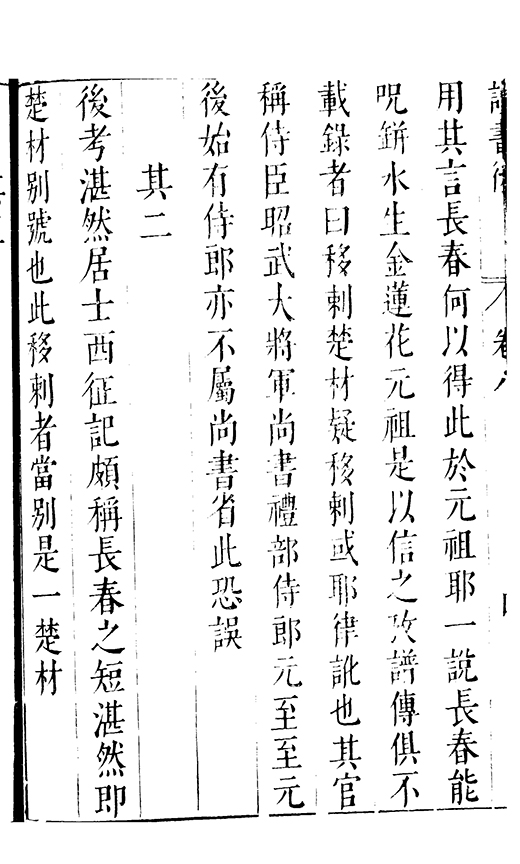 讀書後
卷八
用其言長春何以得此於元祖耶一說長春能
呪鉼水生金蓮花元祖是以信之攷譜傳俱不
載錄者曰移剌楚材疑移剌或耶律訛也其官
稱侍臣昭武大將軍尚書禮部侍郎元至至元
後始有侍郎亦不屬尚書省此恐誤
其二
後考湛然居士西征記頗稱長春之短湛然即
楚材別號也此移剌者當別是一楚材